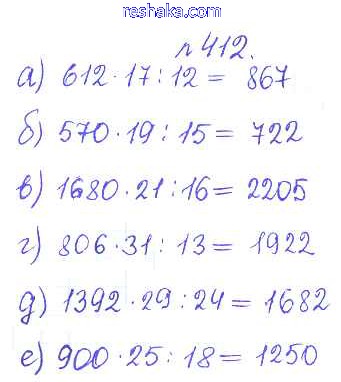 reshaka.com
№ 412.
а) 612 · 17 : 12 = 867
б) 570 · 19 : 15 = 722
в) 1680 · 21 : 16 = 2205
г) 806 · 31 : 13 = 1922
д) 1392 · 29 : 24 = 1682
е) 900 · 25 : 18 = 1250